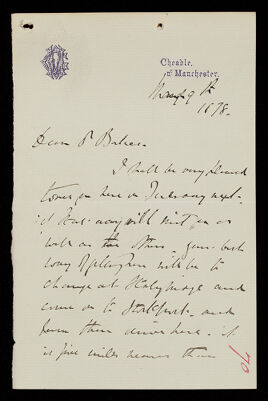 Cheadle,
nr Manchester.
May 9th
1878.
Dear Dr
I shall be very pleased
to see you here on Tuesday next.
if that day will suit you as
well as the other. Your best
way of will be to
change at Stalybridge and
come on to Stockport. and
from there drive here. it
is five miles nearer than
70